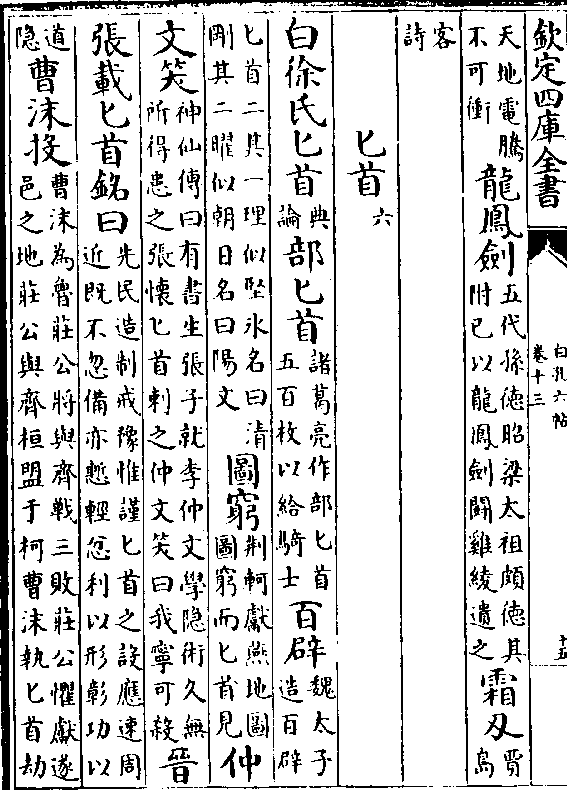 欽定四庫全書
白孔六帖
卷十三
十五
天地電騰不可衝 龍鳳劍 五代孫德昭梁太祖頗德其附已以龍鳳劍鬭雞綾遺之 霜刄 賈島
客詩
匕首 六
白徐氏匕首 典論 部匕首 諸葛亮作部匕首五百枚以給騎士 百辟 魏太子造百辟
匕首二其一理似堅氷名曰清剛其二曜似朝日名曰陽文 圖窮 荆軻獻燕地圖圖窮而匕首見 仲
文笑 神仙傳曰有書生張子就李仲文學隐術久無所得患之張懷匕首刺之仲文笑曰我寧可殺 晉
張載匕首銘曰 先民造制戒豫惟謹匕首之設應速周近既不忽備亦慙輕忿利以形彰功以
道隐 曹沫投 曹沫為魯莊公將與齊戰三敗莊公懼獻遂邑之地莊公與齊桓盟于柯曹沫執匕首劫